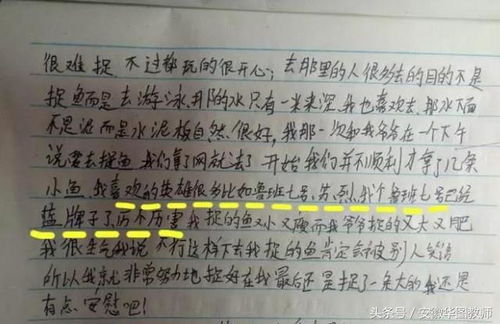 很难捉,不过都玩的很开心;去那里的人很多去的目的不是
捉鱼而是去游泳,那的水只有一米来深,我也喜欢去,那水下面
不是泥而是水泥板自然很好,我那一次和我爷爷在一个下午
说要去捉鱼,我们拿了网就去了,开始我们并不顺利才拿了几条
小鱼,我喜欢的英雄很多比如鲁班七号,苏烈,我个鲁班七号已经
蓝牌子了,厉不厉害我捉的鱼又小又瘦而我爷爷捉的又大又肥
我很生气我说:不行这样下去我捉的鱼肯定会被别人笑话
所以我就非常努力地捉好在我最后还是捉了一条大的我还是
有点安慰吧!
头条号/安徽华图教师